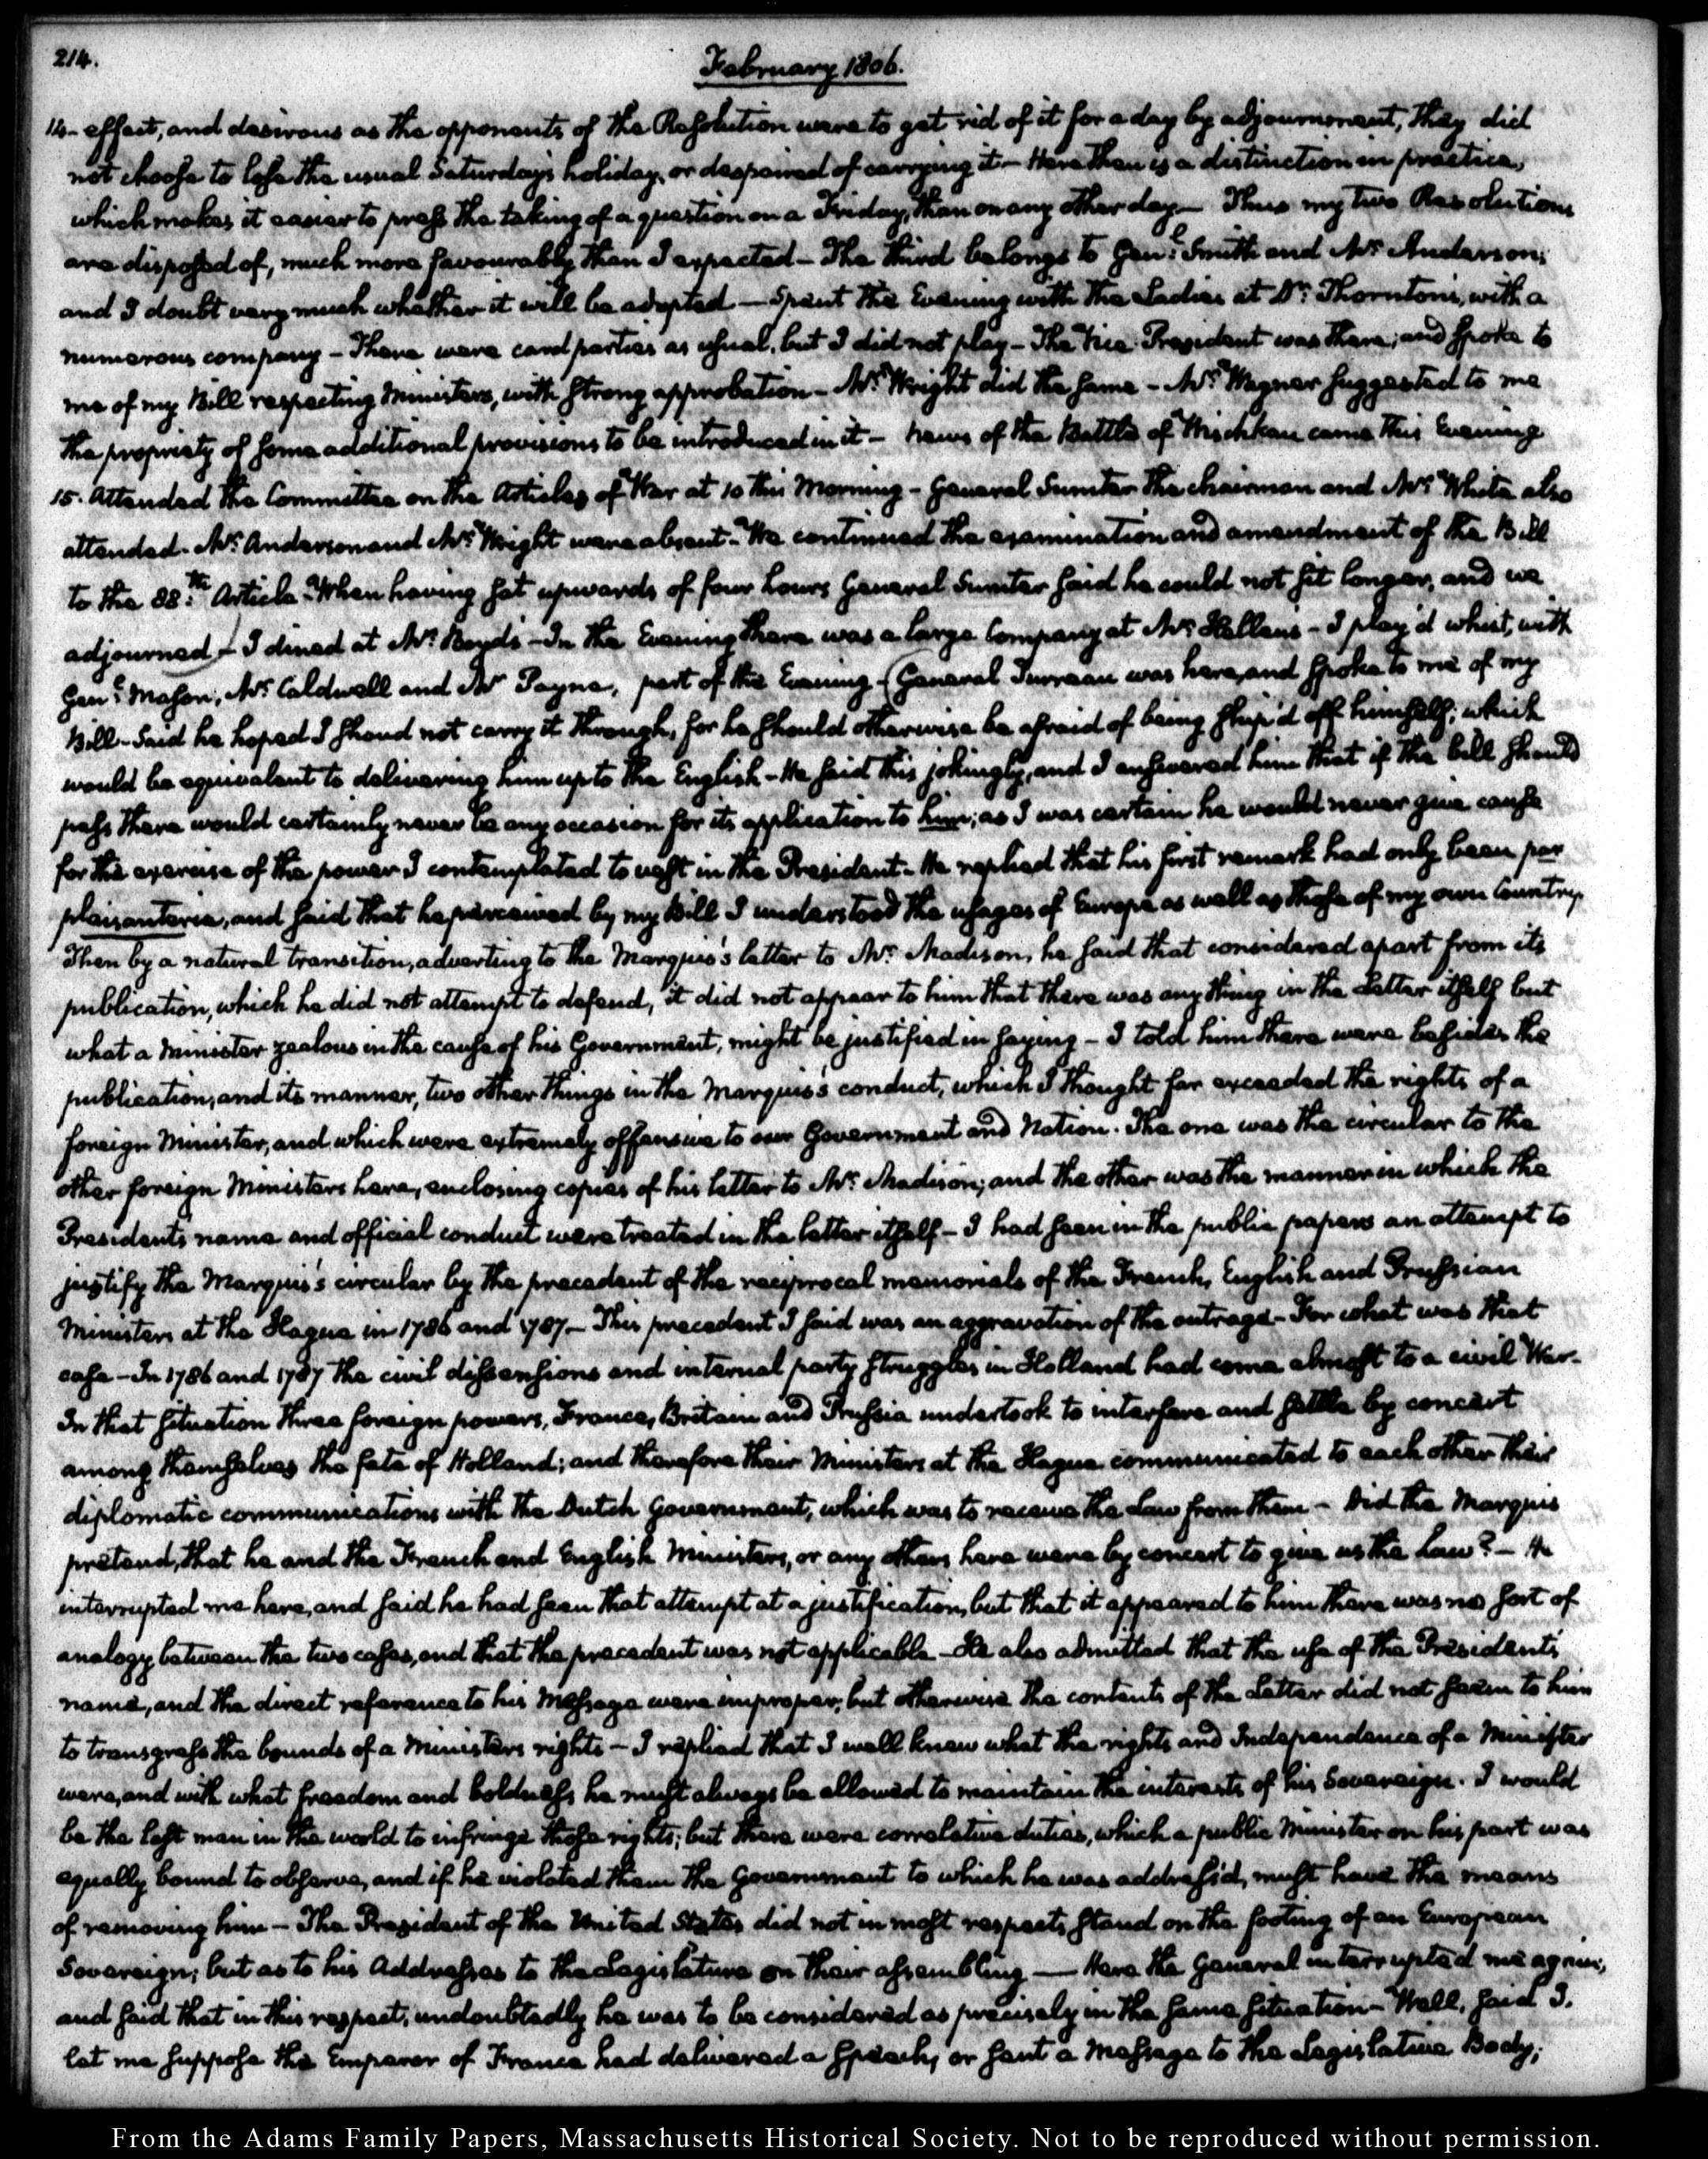 214.
February 1806.
14- effect; and desirous as the opponents of the Resolution were to get rid of it for a day by adjournment, they did
not choose to lose the usual Saturday's holiday, or despaired of carrying it— Here then is a distinction in practice,
which makes it easier to press the taking of a question on a Friday, than on any other day— Thus my two Resolutions
are disposed of, much more favourably than I expected— The third belongs to Genl. Smith and Mr. Anderson;
and I doubt very much whether it will be adopted— Spent the Evening with the Ladies at Dr. Thornton's, with a
numerous company— There were card parties as usual, but I did not play— The Vice President was there; and spoke to
me of my Bill respecting Ministers, with strong approbation— Mr. Wright did the same— Mr. Wagner suggested to me
the propriety of some additional provisions to be introduced in it— News of the Battle of Wischkau came this Evening
15. Attended the Committee on the Articles of War at 10 this Morning— General Sumter the chairman and Mr. White also
attended. Mr. Anderson and Mr. Wright were absent— We continued the examination and amendment of the Bill
to the 88th. Article— When having sat upwards of four hours General Sumter said he could not sit longer, and we
adjourned— I dined at Mr. Boyd's— In the Evening there was a large Company at Mr. Hellen's— I play'd whist, with
Genl. Mason, Mr. Caldwell and Mr Payne, part of the Evening— General Turreau was here, and spoke to me of my
Bill— Said he hoped I shoud not carry it through, for he should otherwise be afraid of being ship'd off himself; which
would be equivalent to delivering him up to the English— He said this jokingly, and I answered him that if the bill should
pass there would certainly never be any occasion for its application to him; as I was certain he would never give cause
for the exercise of the power I contemplated to vest in the President— He replied that his first remark had only been par
plaisanterie, and said that he perceived by my Bill I understood the usages of Europe as well as those of my own Country.
Then by a natural transition, adverting to the Marquis's letter to Mr. Madison, he said that considered apart from its
publication, which he did not attempt to defend, it did not appear to him that there was any thing in the Letter itself but
what a Minister zealous in the cause of his Government, might be justified in saying— I told him there were besides the
publication, and its manner, two other things in the Marquis's conduct, which I thought far exceeded the rights of a
foreign Minister, and which were extremely offensive to our Government and Nation. The one was the circular to the
other foreign Ministers here, enclosing copies of his letter to Mr. Madison; and the other was the manner in which the
President's name and official conduct were treated in the letter itself— I had seen in the public papers an attempt to
justify the Marquis's circular by the precedent of the reciprocal memorials of the French, English and Prussian
Ministers at the Hague in 1786 and 1787— This precedent I said was an aggravation of the outrage— For what was that
case— In 1786 and 1787 the civil dissensions and internal party struggles in Holland had come almost to a civil War—
In that situation three foreign powers, France, Britain and Prussia undertook to interfere and settle by concert
among themselves the fate of Holland; and therefore their Ministers at the Hague communicated to each other their
diplomatic communications with the Dutch Government, which was to receive the Law from them— Did the Marquis
pretend, that he and the French and English Ministers, or any others here were by concert to give us the Law?— He
interrupted me here, and said he had seen that attempt at a justification, but that it appeared to him there was no sort of
analogy between the two cases, and that the precedent was not applicable— He also admitted that the use of the President's
name, and the direct reference to his Message were improper; but otherwise the contents of the Letter did not seem to him
to transgress the bounds of a Ministers rights— I replied that I well knew what the rights and Independence of a Minister
were, and with what freedom and boldness he must always be allowed to maintain the interests of his Sovereign. I would
be the last man in the world to infringe those rights; but there were correlative duties, which a public Minister on his part was
equally bound to observe, and if he violated them the Government to which he was address'd, must have the means
of removing him— The President of the United States did not in most respects stand on the footing of an European
Sovereign; but as to his Addresses to the Legislature on their assembling —— Here the General interrupted me again,
and said that in this respect, undoubtedly he was to be considered as precisely in the same situation— Well, said I,
let me suppose the Emperor of France had delivered a Speech, or sent a Message to the Legislative Body;
From the Adams Family Papers, Massachusetts Historical Society. Not to be reproduced without permission.